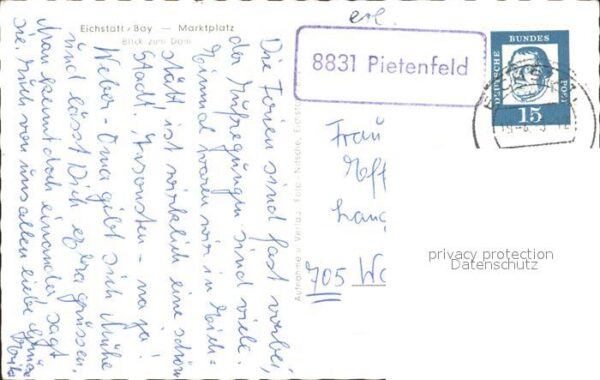 Eichstätt/Bay — Marktplatz
Blick zum Dom
erl.
8831 Pietenfeld
DEUTSCHE BUNDESPOST
15
Die Ferien sind fast vorbei,
der Aufregungen sind viele.
Einmal waren wir in Eich-
stätt ist wirklich eine schöne
Stadt. Ansonsten - na ja!
Weber-Oma gibt sich Mühe
und lässt Dich extra grüssen,
Man kennt doch einander, sagt
sie. Auch von uns allen liebe Grüsse
Aufnahme u. Verlag: Foto
Frau
Lang
705 Wa
privacy protection
Datenschutz